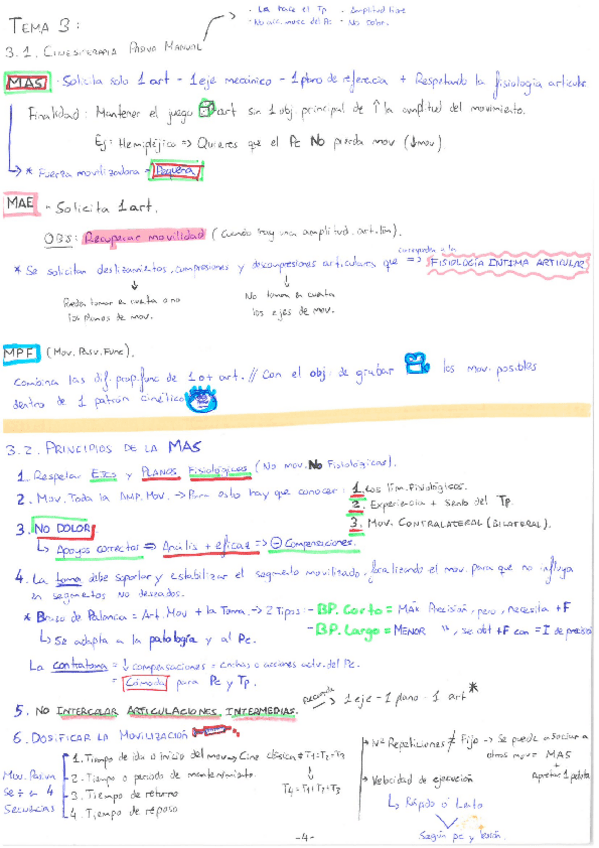 TEMA 3:
- La hace el Tp - Amplitud libre
- No acc. musc del Pc - No dolor.
3.1. CINESITERAPIA PASIVA MANUAL
MAS - Solicita solo 1 art - 1 eje mecánico - 1 plano de referencia + Respetando la fisiología articular
Finalidad: Mantener el juego art sin 1 obj principal de ↑ la amplitud del movimiento.
Ej: Hemipléjico => Quieres que el Pc NO pierda mov (↓mov)
* Fuerza movilizadora = Pequeña
MAE - Solicita 1 art.
OBJ: Recuperar movilidad (Cuando hay una amplitud. art. lim).
* Se solicitan deslizamientos, compresiones y descompresiones articulares, que corresponden a la => FISIOLOGÍA ÍNTIMA ARTICULAR
Pueden tomar en cuenta o no los planos de mov.
No toman en cuenta los ejes de mov.
MPF (Mov. Pasv. Func).
Combina las dif. prop. func de 1 o + art. // Con el obj. de grabar los mov. posibles
dentro de 1 patrón cinético
3.2. PRINCIPIOS DE LA MAS
1. Respetar EJES y PLANOS Fisiológicos (No mov. No Fisiológicos).
2. Mov. Toda la AMP. Mov. -> Para esto hay que conocer:
1. Los lím. Fisiológicos.
2. Experiencia + Sents del Tp.
3. MOV. CONTRALATERAL (BILATERAL).
3. NO DOLOR
Apoyos correctos => Análisis + eficaz => ⊖ Compensaciones
4. La toma debe soportar y estabilizar el segmento movilizado, localizando el mov. para que no influya
en segmentos no deseados.
* Brazo de Palanca = Art. Mov + la Toma. -> 2 Tipos:
- BP. Corto = MÁX Precisión, pero, necesita +F
- BP. Largo = MENOR " , se obt +F con = I de precisión
Se adapta a la patología y al Pc.
La contratoma = ↓ compensaciones = contras o acciones activ. del Pc.
= Cómoda para Pc y Tp.
5. NO INTERCALAR ARTICULACIONES INTERMEDIAS. recuerda -> 1 eje - 1 plano - 1 art *
6. DOSIFICAR LA MOVILIZACIÓN
Mov. Pasiva se ÷ en 4 Secuencias
1. Tiempo de ida o inicio del mov.
2. Tiempo o periodo de mantenimiento.
3. Tiempo de retorno
4. Tiempo de reposo
Cine clásica # T1=T2=T3
T4=T1+T2+T3
Nº Repeticiones ≠ Fijo -> Se puede asociar a otras mov = MAS + apretar 1 pelota
Velocidad de ejecución
Rápido ó Lento
Según pc y lesión.
-4-